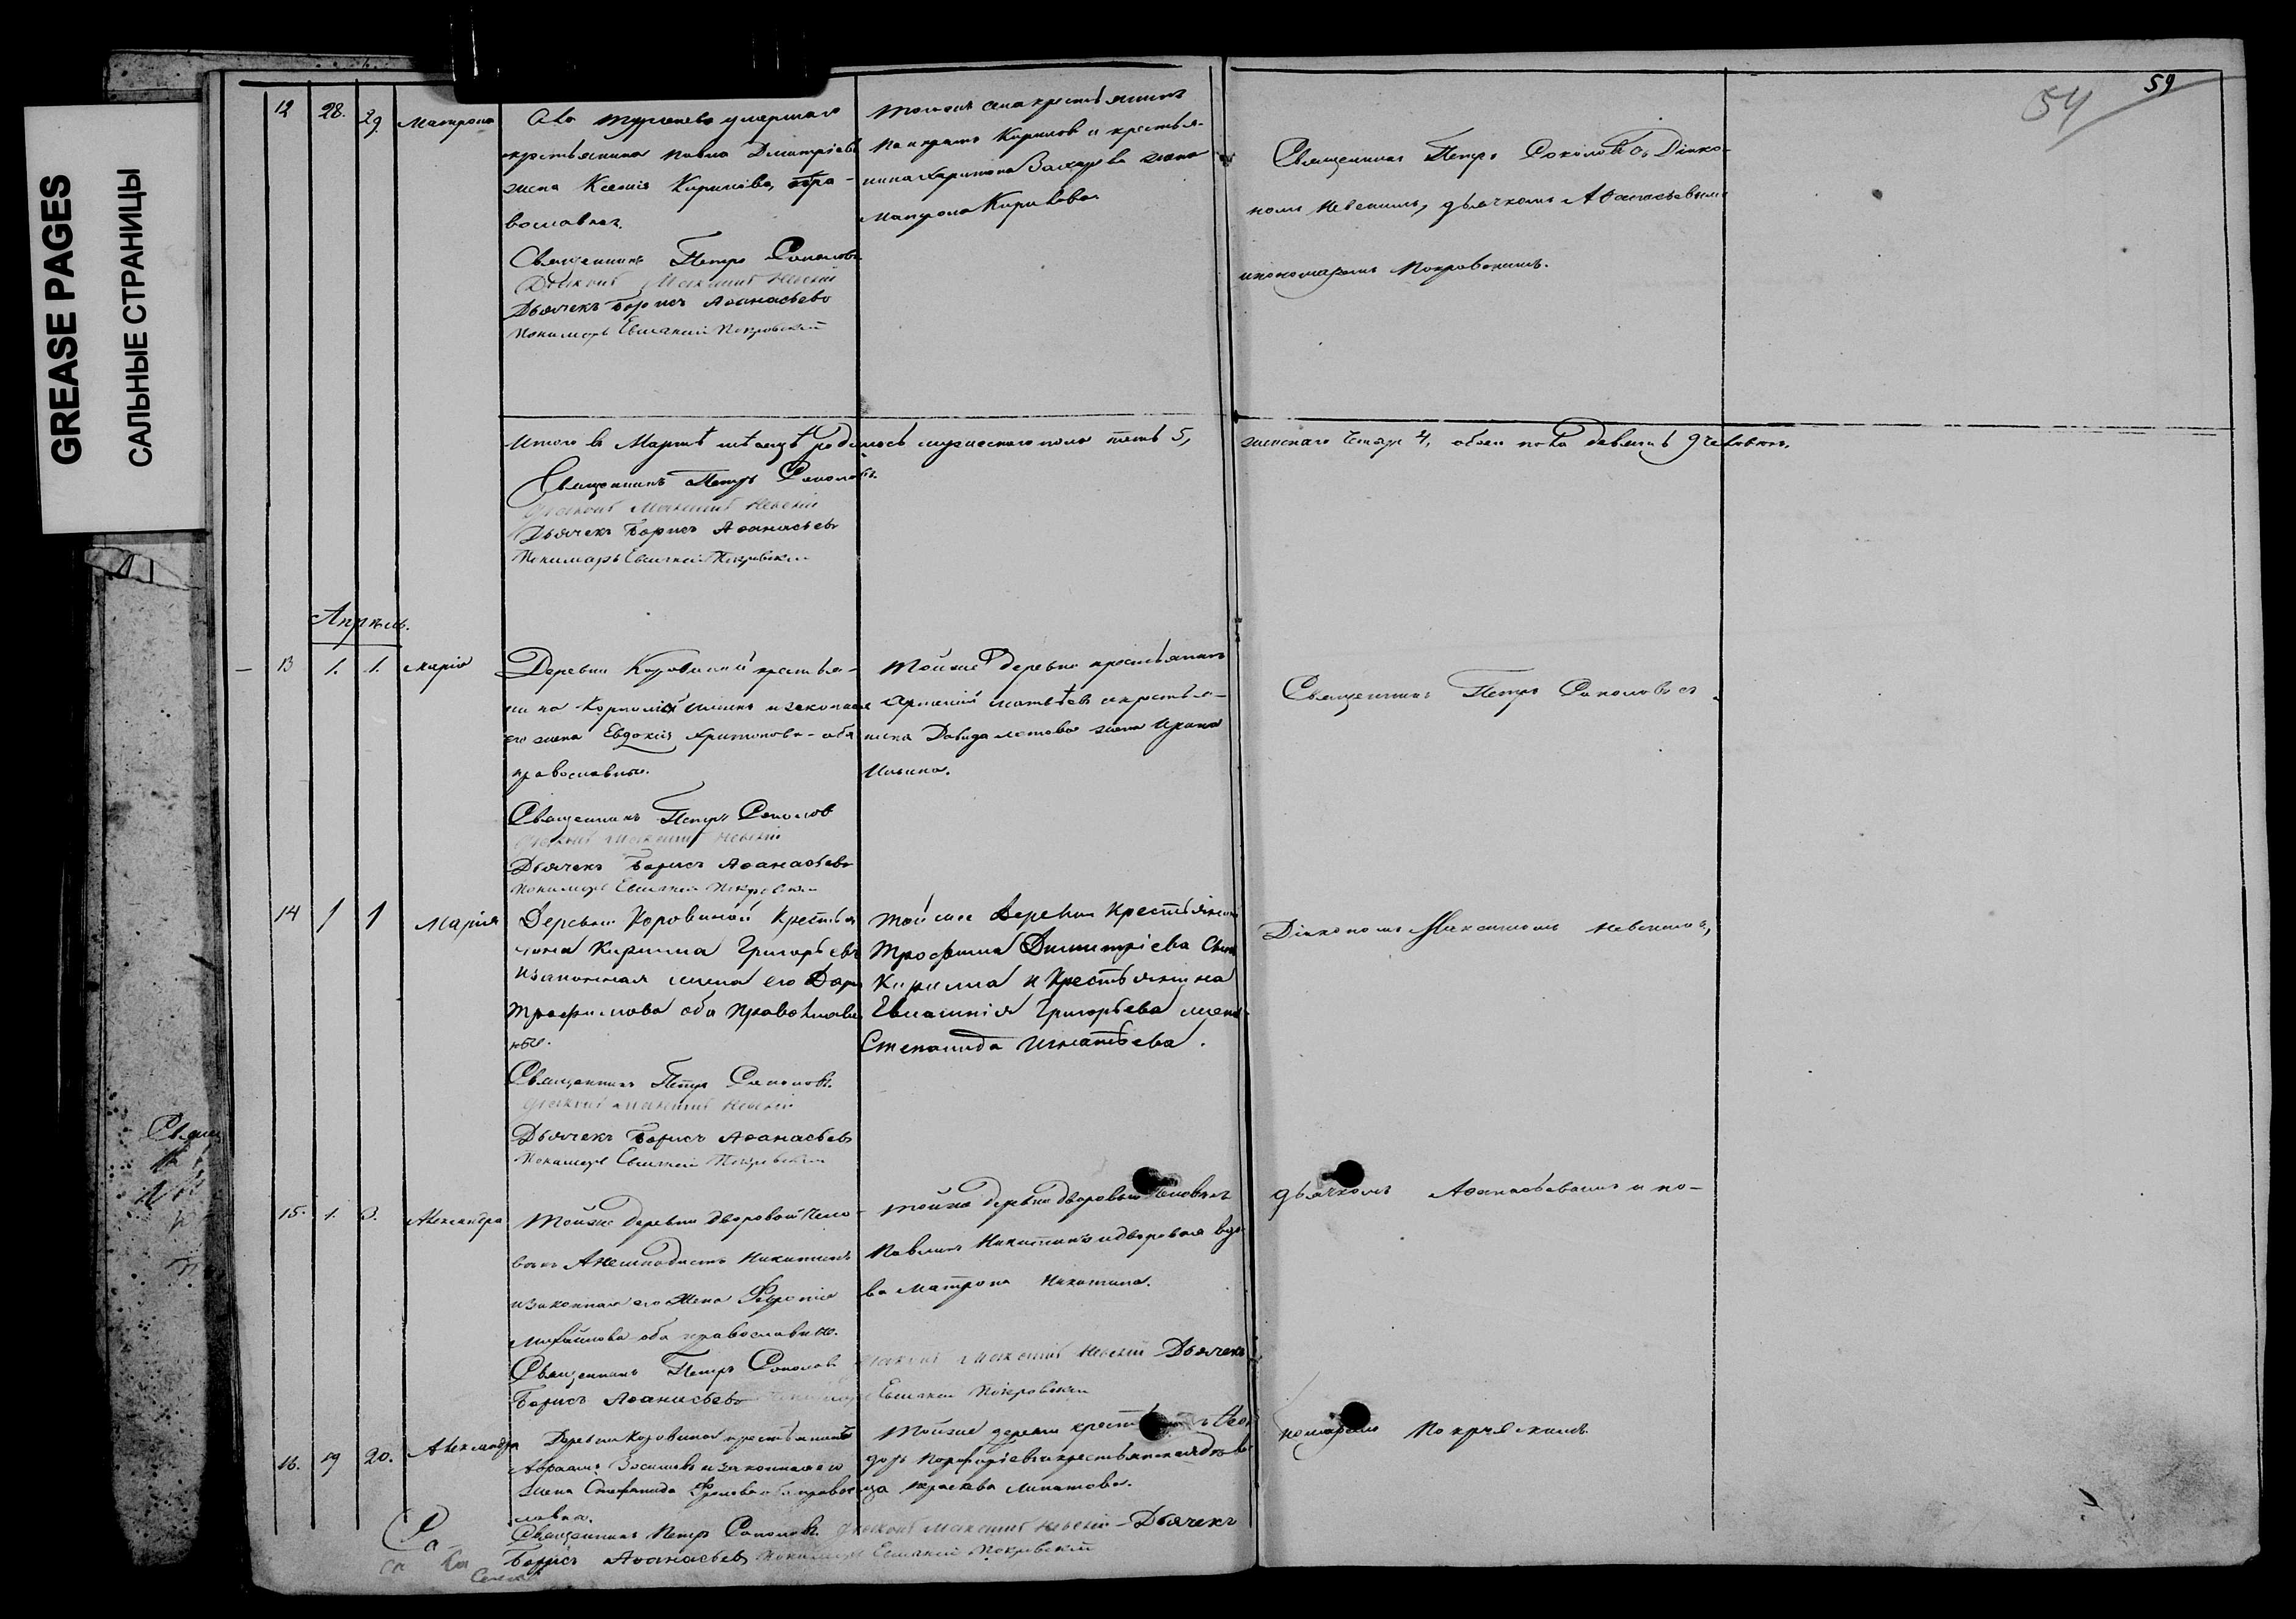 GREASE PAGES
САЛЬНЫЕ СТРАНИЦЫ
59
54
12 28. 29. Матрона
умершаго
крестьянина Павла Дмитріева
жена Ксенія Кирилова,
вославная.
Священникъ Петръ Соколовъ
Діаконъ Максимъ Невскій
Дьячекъ Борисъ Аѳанасьевъ
Пономарь Евмений Покровскій
крестьянинъ
Кирилов и крестья-
нина Харитона Захарова жена
Матрона Кирилова
Священникъ Петръ Соколовъ съ Діако-
номъ Невскимъ, дьячкомъ Аѳанасьевымъ
и пономаремъ Покровскимъ.
Итого въ Мартѣ мѣсяцѣ родилось мужескаго пола пять 5, женскаго четыре 4, обоего пола девять 9 человѣкъ.
Священникъ Петръ Соколовъ.
Діаконъ Максимъ Невскій
Дьячекъ Борисъ Аѳанасьевъ
Пономарь Евмений Покровскій
Апрѣль.
13 1. 1. Марія
Деревни Коровиной крестья-
нинъ и законная
его жена Евдокія Харитонова - оба
православные.
Священникъ Петръ Соколовъ
Діаконъ Максимъ Невскій
Дьячекъ Борисъ Аѳанасьевъ
Пономарь Евмений Покровскій
Тойже деревни крестьянинъ
Матвѣевъ и крестья-
нина Давида жена Ирина
Ильина.
Священникъ Петръ Соколовъ съ
14 1 1 Марія
Деревни Коровиной Крестья
нина Кирилла Григорьева
Изаконная жена его Дарья
Трофимова оба Православ
ные.
Священникъ Петръ Соколовъ.
Діаконъ Максимъ Невскій
Дьячекъ Борисъ Аѳанасьевъ
Пономарь Евмений Покровскій
Той же Деревни Крестьянина
Трофима Димитріева Сынъ
Кирилла и Крестьянина
Григорьева жена
Степанида Игнатьева.
Діакономъ Максимомъ Невскимъ,
15. 1. 3. Александра
Тойже деревни дворовой чело-
векъ Никитинъ
изаконная его Жена Февронія
Михайлова оба православные.
Священникъ Петръ Соколовъ Діаконъ Максимъ Невскій Дьячекъ
Борисъ Аѳанасьевъ Пономарь Евмений Покровскій
Тойже деревни дворовый человекъ
Павлинъ Никитинъ и дворовая вдо-
ва Матрона Никитина.
дьячкомъ Аѳанасьевымъ и по-
16. 19 20. Александра
Деревни Коровиной крестьянинъ
Абрамъ и законная его
жена Стефанида оба правос
лавные.
Священникъ Петръ Соколовъ. Діаконъ Максимъ Невскій Дьячекъ
Борисъ Аѳанасьевъ Пономарь Евмений Покровскій
Тойже деревни
доръ Порфирьевъ и крестьянская
ца
номаремъ Покровскимъ